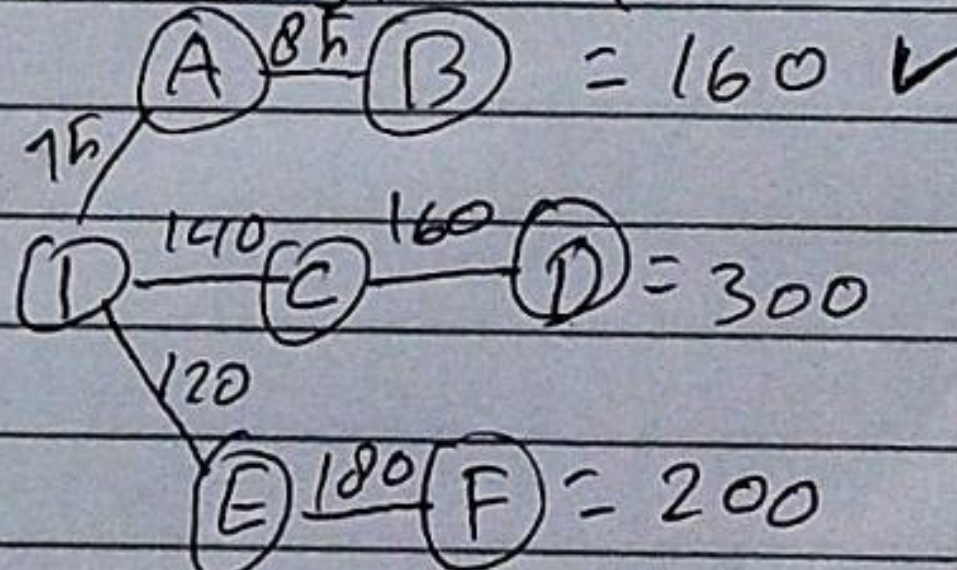 A 85 B = 160 ✓
75
1 140 C 160 D = 300
120
E 180 F = 200